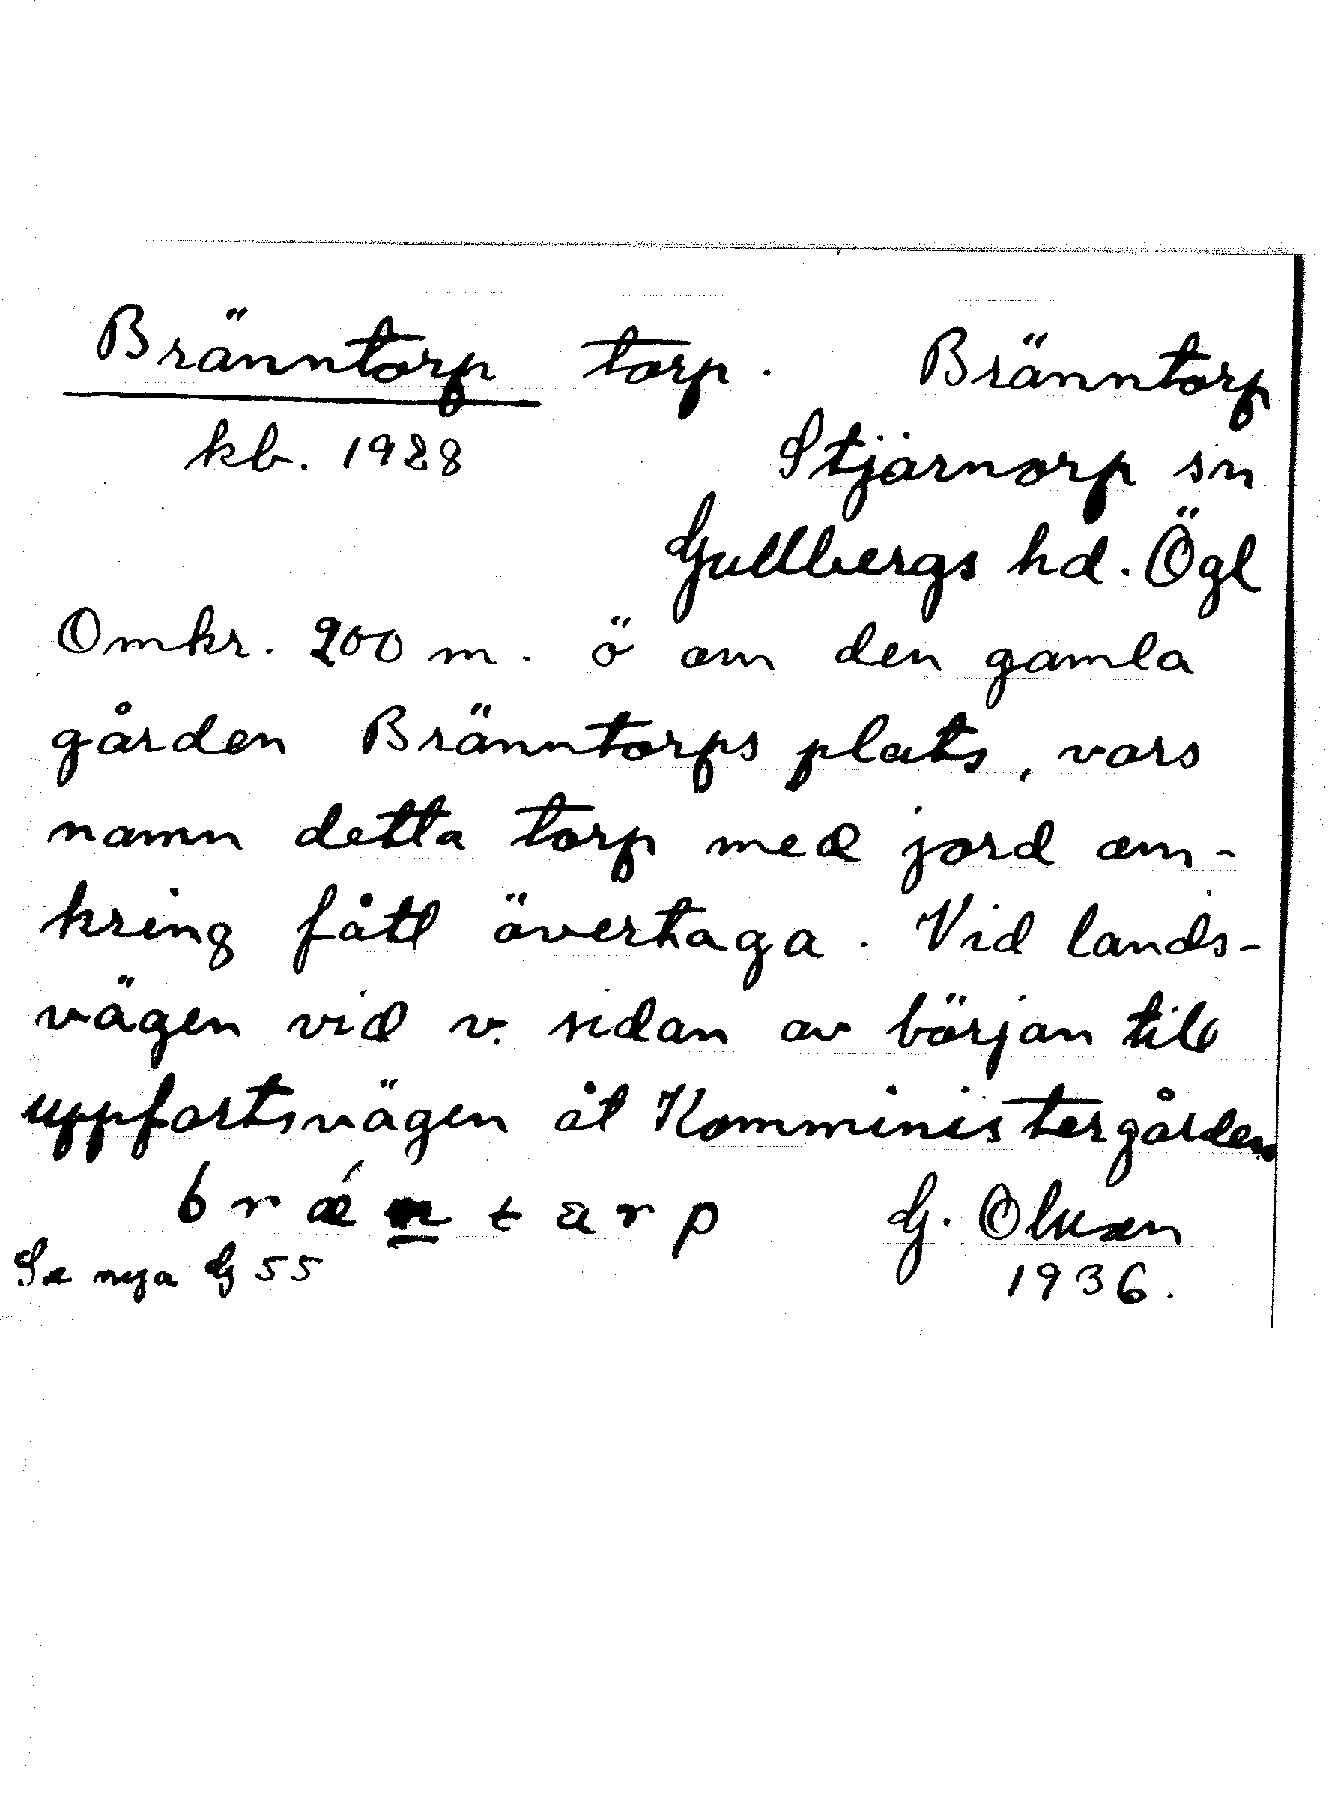 Bränntorp torp. Bränntorp
kb. 1928 Stjärnorp sn
Gullbergs hd. Ögl
Omkr. 200 m. ö om den gamla
gården Bränntorps plats, vars
namn detta torp med jord om-
kring fått övertaga. Vid lands-
vägen vid v. sidan av början till
uppfartsvägen åt Komministergården
brǽntarp G. Olsson
Se nya G 55 1936.